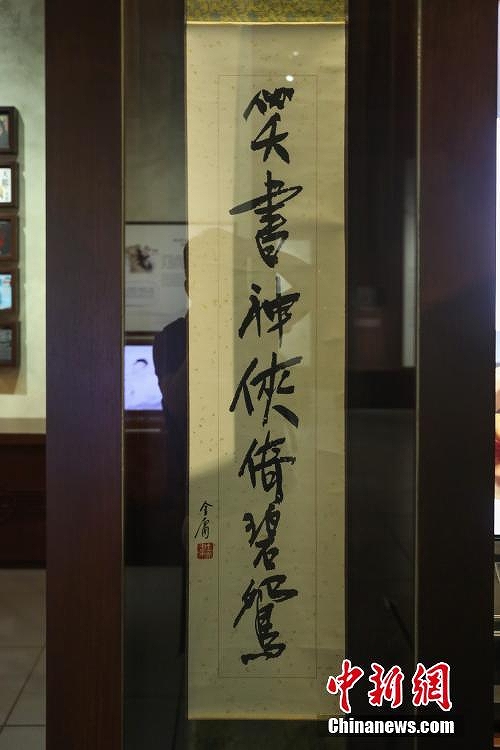 笑書神俠倚碧鴛
金庸
中新网
Chinanews.com